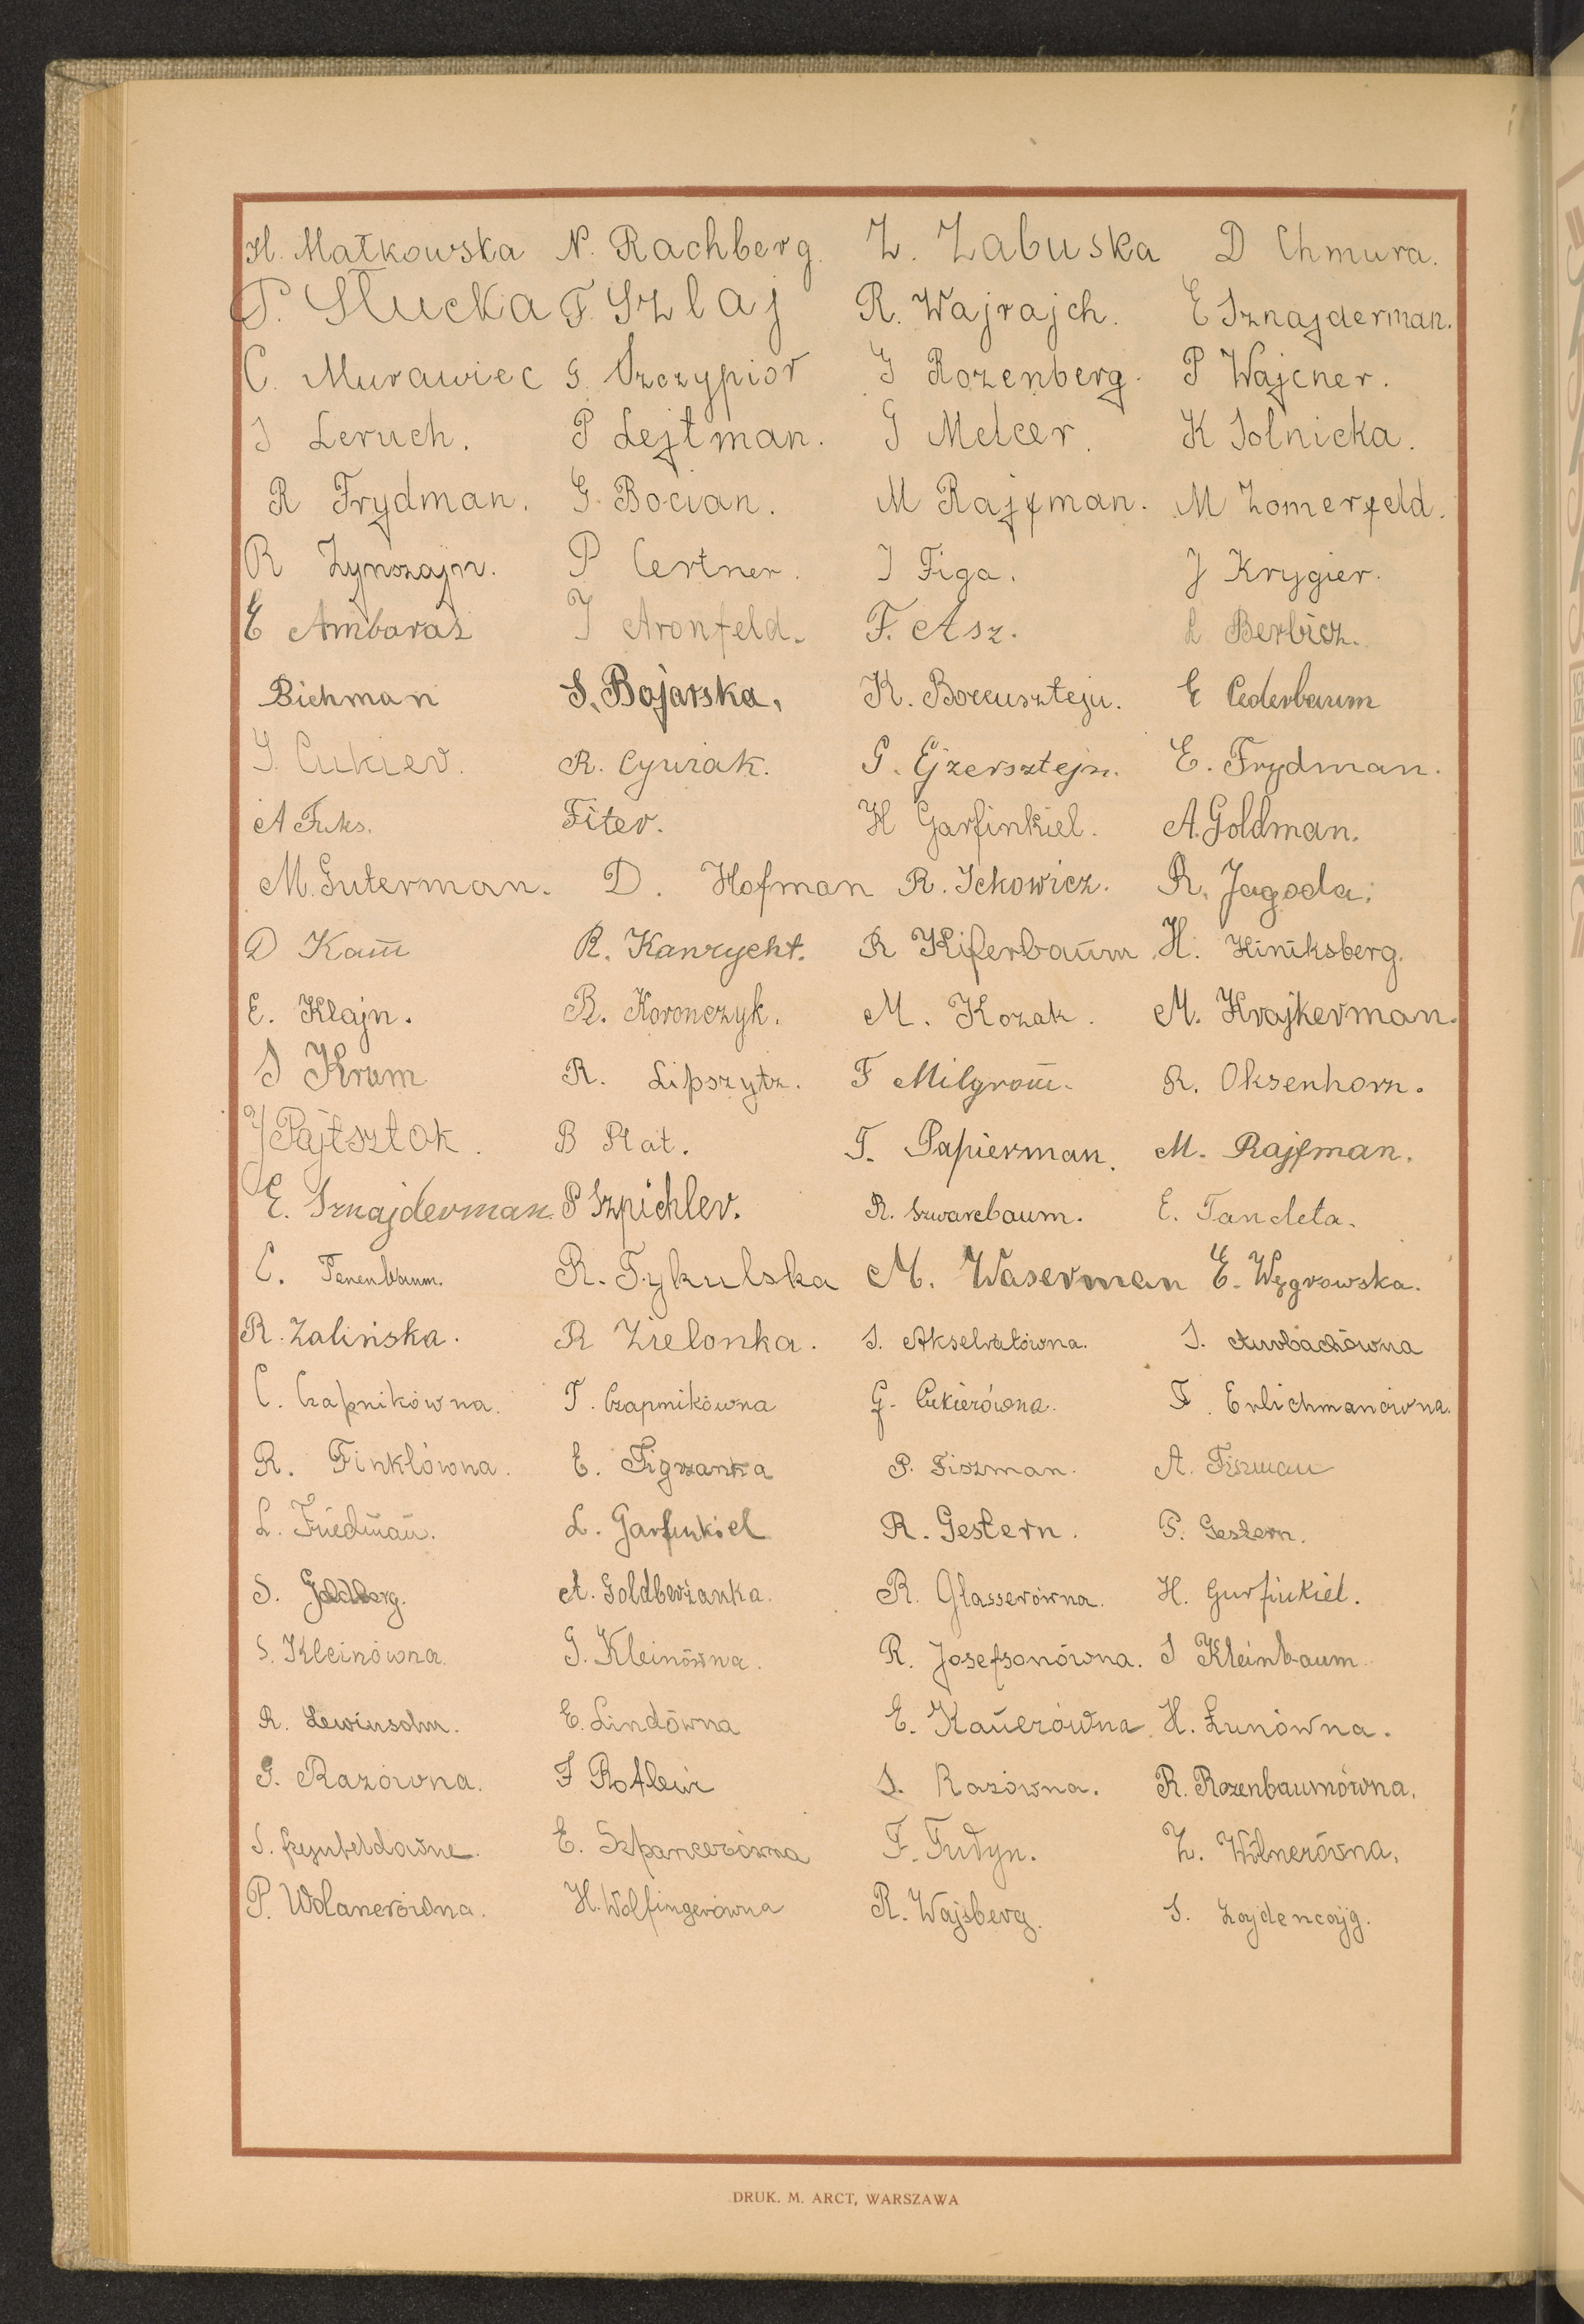 H. Małkowska N. Rachberg. Z. Zabuska D Chmura.
P. Słucka F. Szlaj R. Wajrajch. E Sznajderman.
C. Murawiec G. Szczypior G Rozenberg. P Wajcner.
I Leruch. P Lejtman. G Melcer. K Solnicka.
R Frydman. G. Bocian. M Rajfman. M Zomerfeld.
R Zynszajn. P Certner. I Figa. J Krygier.
E Ambaras I Aronfeld. F. Asz. L Berbicz.
Bichman S. Bojarska, K. Borensztejn. E Cederbaum
G. Cukier. R. Cywiak. G. Ejzersztejn. E. Frydman.
A Fuks. Fiter. H Garfinkiel. A. Goldman.
M. Guterman. D. Hofman R. Ickowicz. R. Jagoda.
D Kam R. Kanrycht. R Kiferbaum H. Kiniksberg.
E. Klajn. B. Koronczyk. M. Kozak. M. Krajkerman.
S Kram R. Lipszytz. F Milgrom. R. Oksenhorn.
J Pajtsztok. B Plat. T. Papierman. M. Rajfman.
E. Sznajderman. P Szpichler. R. Szwarcbaum. E. Tandeta.
C. Tenenbaum. R. Tykulska M. Waserman E. Węgrowska.
R. Zalińska. R Zielonka. S. Akselratówna. S. Aurbachówna
C. Czapnikówna. T. Czapnikówna G. Cukierówna. F. Erlichmanówna.
R. Finklówna. E. Figzanka P. Fiszman. A. Fiszman
L. Friedman. L. Garfinkiel R. Gestern. P. Gestern.
S. Goldberg. A. Goldberżanka. R. Glasserówna. H. Gurfinkiel.
S. Kleinówna. G. Kleinówna. R. Josefsonówna. S Kleinbaum.
R. Lewinsohn. E. Lindówna E. Kauerówna H. Łunówna.
G. Razówna. F Rotlein S. Razówna. R. Rozenbaumówna.
S. E. Szpancerówna F. Tudyn. Z. Wilnerówna.
P. Wolanerówna. H. Wolfingerówna R. Wajsberg. S. Zajdencajg.
DRUK. M. ARCT, WARSZAWA